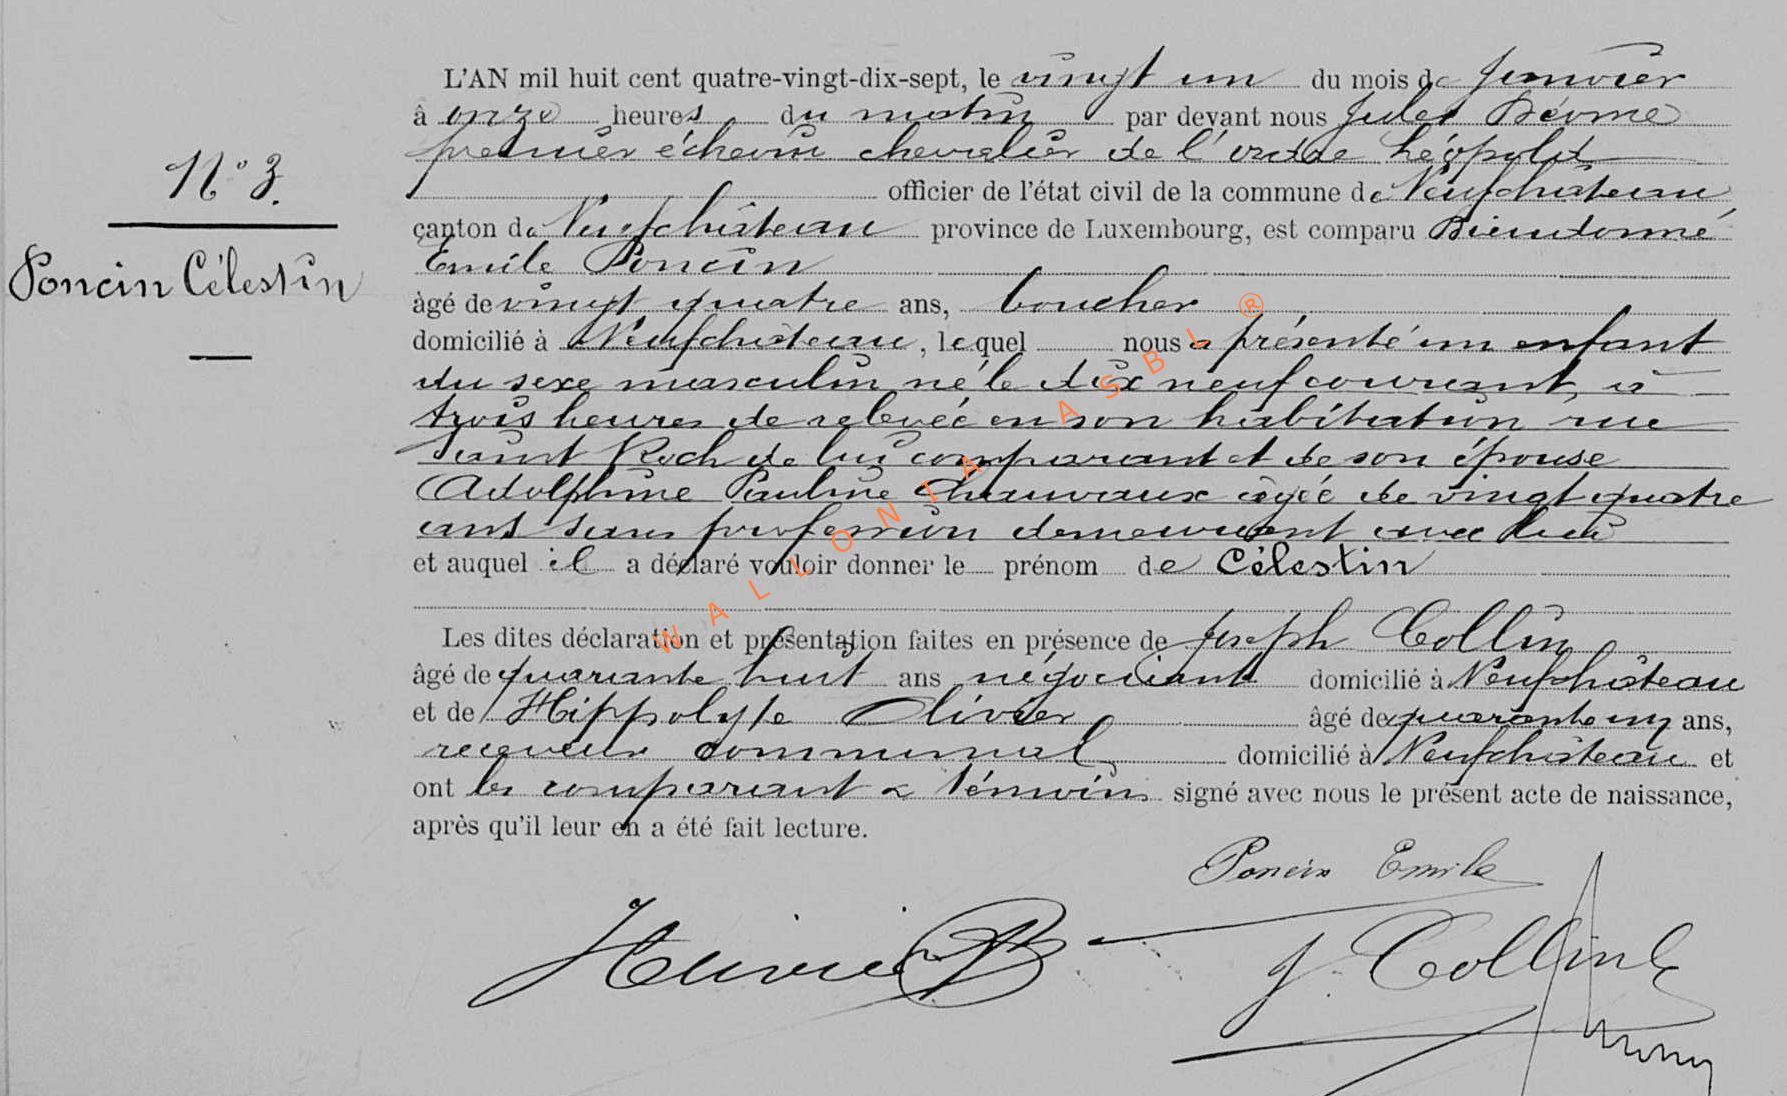 N° 3.
Poncin Célestin
L'AN mil huit cent quatre-vingt-dix-sept, le vingt un du mois de Janvier
à onze heures du matin par devant nous Jules
premier échevin chevalier de l'ordre Léopold
officier de l'état civil de la commune de Neufchâteau
canton de Neufchâteau province de Luxembourg, est comparu Dieudonné
Emile Poncin
âgé de vingt quatre ans, boucher
domicilié à Neufchâteau, lequel nous a présenté un enfant
du sexe masculin, né le dix neuf courant, à
trois heures de relevée en son habitation rue
Saint Roch de lui comparant et de son épouse
Adolphine Pauline Chauvaux âgée de vingt quatre
ans sans profession demeurant avec lui
et auquel il a déclaré vouloir donner le prénom de Célestin
Les dites déclaration et présentation faites en présence de Joseph Collin
âgé de quarante huit ans négociant domicilié à Neufchâteau
et de Hippolyte Olivier âgé de quarante un ans,
receveur communal domicilié à Neufchâteau et
ont les comparant & témoins signé avec nous le présent acte de naissance,
après qu'il leur en a été fait lecture.
Poncin Emile
J. Collin
WALLONIA ASBL ®